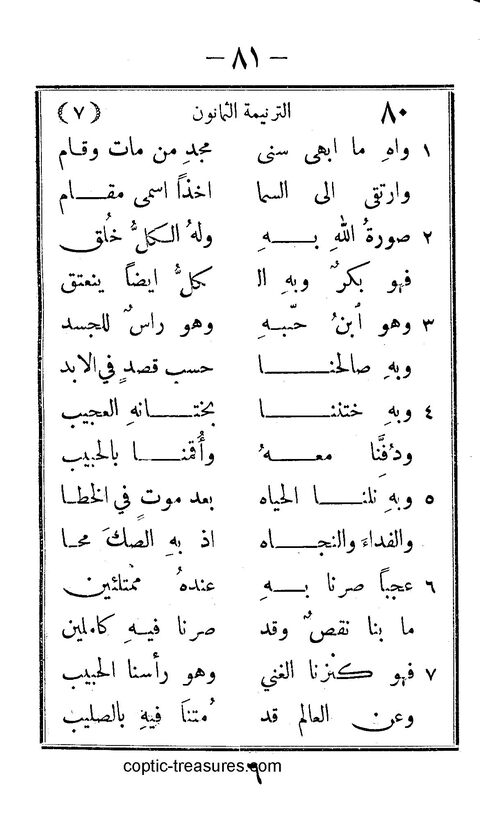 — ٨١ —
٨٠ الترنيمة الثمانون (٧)
١ واهِ ما ابهى سنى مجدِ من مات وقام
وارتقى الى السما اخذاً اسمى مقام
٢ صورةُ اللهِ بهِ ولهُ الكلُّ خُلق
فهو بكرٌ وبهِ الـ كلُّ ايضاً ينعتق
٣ وهو ٱبنُ حبّهِ وهو راسٌ للجسد
وبهِ صالحنا حسب قصدٍ في الابد
٤ وبهِ ختننا بختانهِ العجيب
ودُفنَّا معهُ وأُقمنا بالحبيب
٥ وبهِ نلنا الحياه بعد موتٍ في الخطا
والفداءَ والنجاه اذ بهِ الصكَ محا
٦ عجباً صرنا بهِ عندهُ ممتلئين
ما بنا نقصٌ وقد صرنا فيهِ كاملين
٧ فهو كنزنا الغني وهو رأسنا الحبيب
وعن العالم قد مُتنا فيهِ بالصليب
٦
coptic-treasures.com